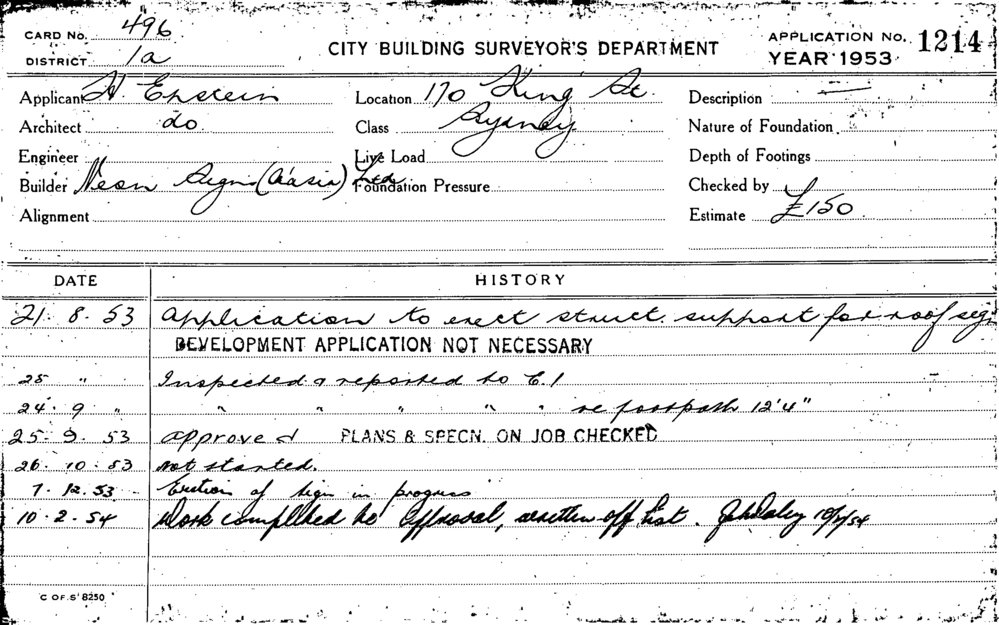 CARD No. 496
DISTRICT 1a
CITY BUILDING SURVEYOR'S DEPARTMENT
APPLICATION No. 1214
YEAR 1953
Applicant H. Epstein
Location 170 King St.
Description
Architect do
Class Sydney
Nature of Foundation
Engineer
Live Load
Depth of Footings
Builder Neon Signs (A'asia) Ltd
Foundation Pressure
Checked by
Alignment
Estimate £150
DATE HISTORY
21. 8. 53 Application to erect struct. support for roof sign
DEVELOPMENT APPLICATION NOT NECESSARY
25 " Inspected & reported to C.I
24. 9 " " " " " " re footpath 12'4"
25. 9. 53 approved PLANS & SPECN. ON JOB CHECKED
26. 10. 53 not started.
7. 12. 53 Erection of sign in progress
10. 2. 54 Work completed to approval, written off list.
C OF S 8250